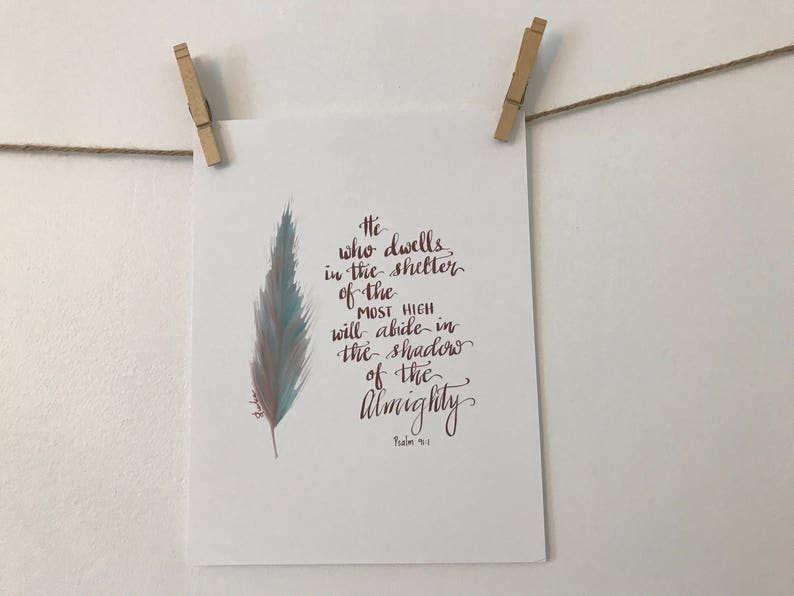 He
who dwells
in the shelter
of the
MOST HIGH
will abide in
the shadow
of the
Almighty
Psalm 91:1